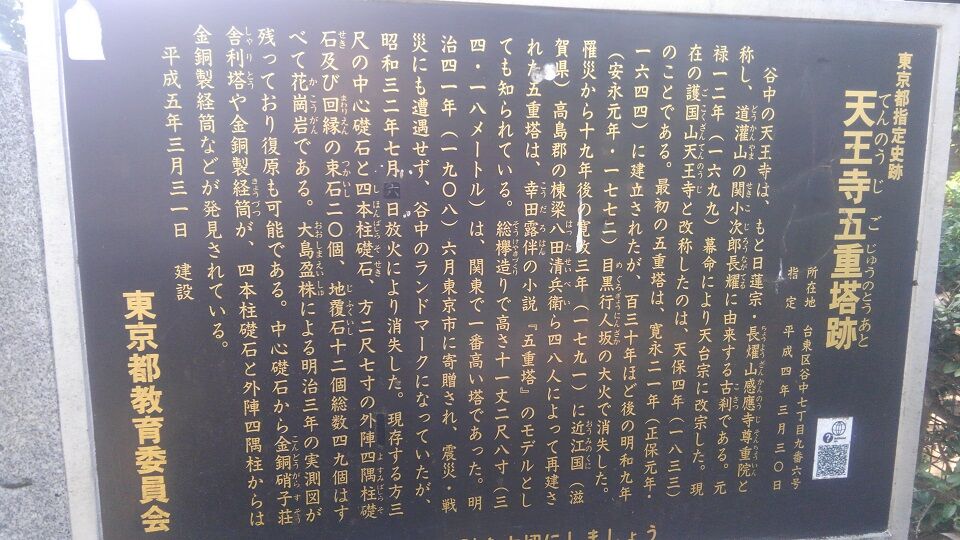 東京都指定史跡
天王寺五重塔跡
てんのうじごじゅうのとうあと
所在地 台東区谷中七丁目九番六号
指定 平成四年三月三〇日
谷中の天王寺は、もと日蓮宗・長耀山感應寺尊重院と
称し、道灌山の関小次郎長耀に由来する古刹である。元
禄一二年(一六九九)幕命により天台宗に改宗した。現
在の護国山天王寺と改称したのは、天保四年(一八三三)
のことである。最初の五重塔は、寛永二一年(正保元年・
一六四四)に建立されたが、百三十年ほど後の明和九年
(安永元年・一七七二)目黒行人坂の大火で消失した。
罹災から十九年後の寛政三年(一七九一)に近江国(滋
賀県)高島郡の棟梁八田清兵衛ら四八人によって再建さ
れた五重塔は、幸田露伴の小説『五重塔』のモデルとし
ても知られている。総欅造りで高さ十一丈二尺八寸(三
四・一八メートル)は、関東で一番高い塔であった。明
治四一年(一九〇八)六月東京市に寄贈され、震災・戦
災にも遭遇せず、谷中のランドマークになっていたが、
昭和三二年七月六日放火により消失した。現存する方三
尺の中心礎石と四本柱礎石、方二尺七寸の外陣四隅柱礎
石及び回縁の束石二〇個、地覆石十二個総数四九個はす
べて花崗岩である。大島盈株による明治三年の実測図が
残っており復原も可能である。中心礎石から金銅硝子荘
舎利塔や金銅製経筒が、四本柱礎石と外陣四隅柱からは
金銅製経筒などが発見されている。
平成五年三月三一日 建設
東京都教育委員会
大切にしましょう